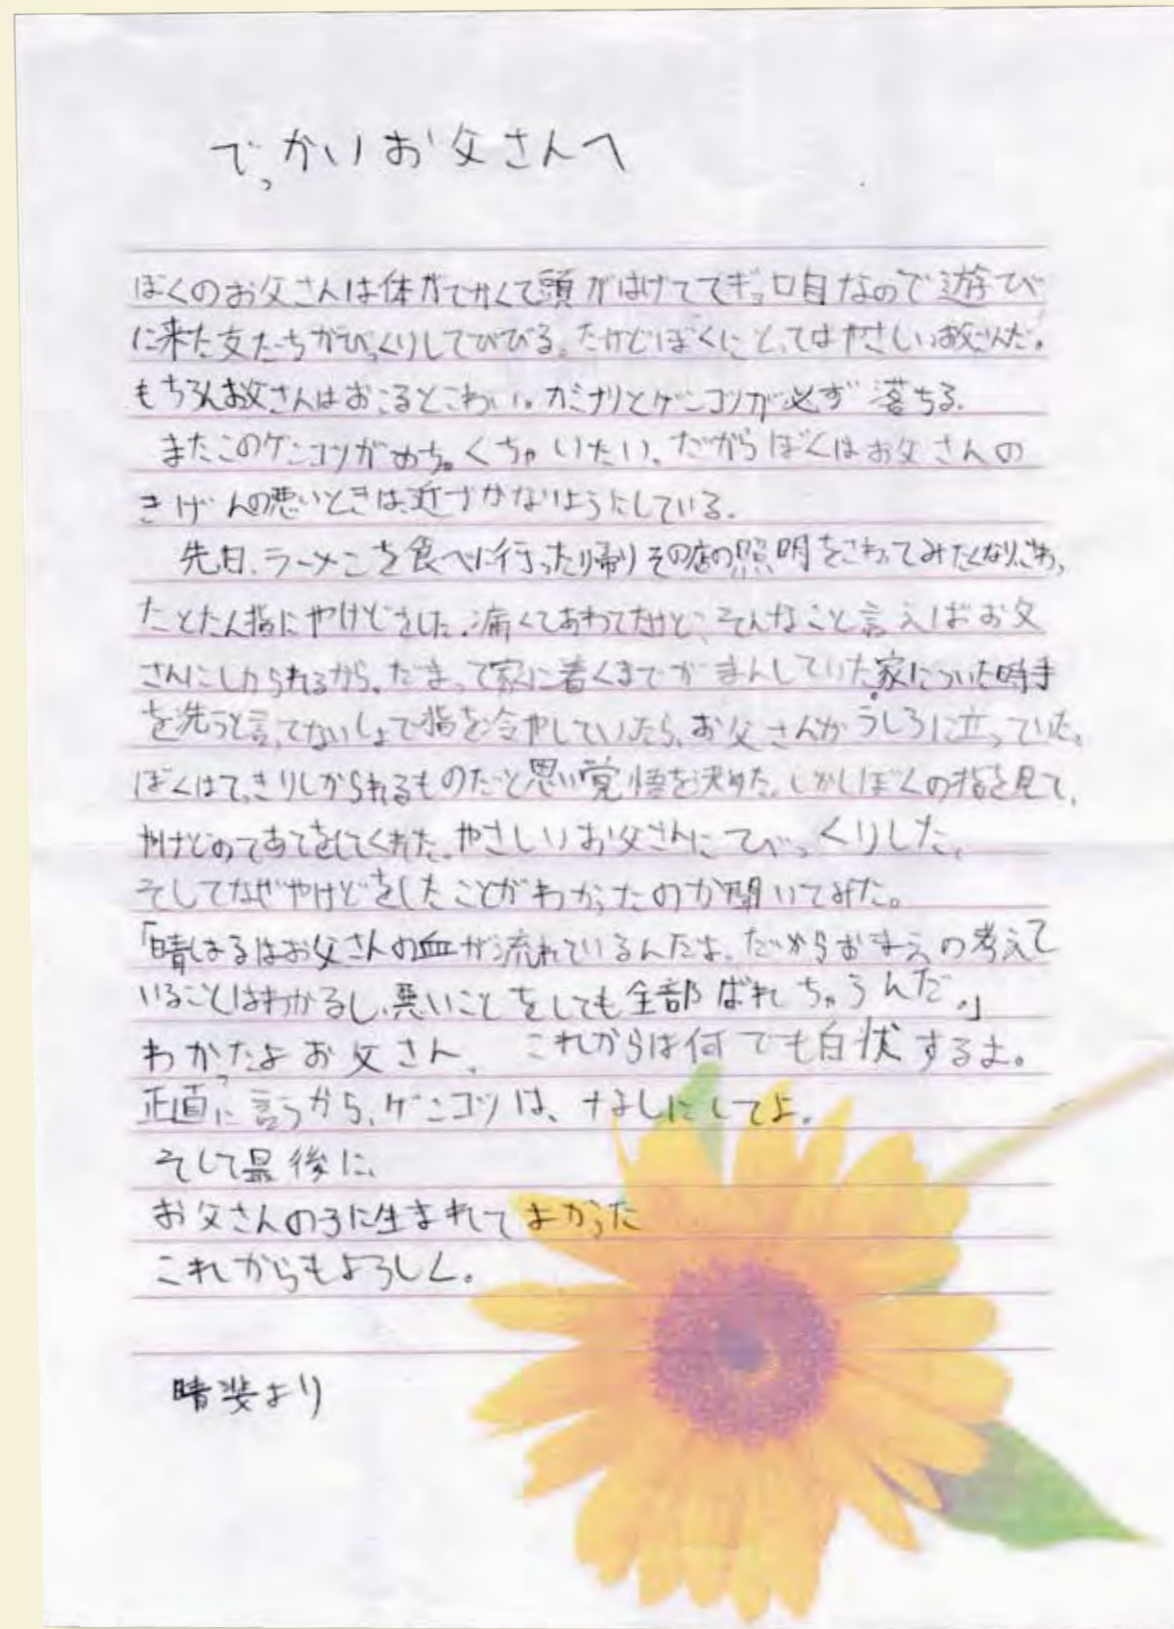 でっかいお父さんへ
ぼくのお父さんは体がでかくて頭がはげててギョロ目なので遊び
に来た友たちがびっくりしてびびる。だけどぼくにとってはやさしいお父さんだ。
もちろんお父さんはおこるとこわい。カミナリとゲンコツが必ず落ちる。
またこのゲンコツがめちゃくちゃいたい。だからぼくはお父さんの
きげんの悪いときは、近づかないようにしている。
先日、ラーメンを食べに行った帰りその店の照明をさわってみたくなり、さわっ
たとたん指にやけどをした。痛くてあわてたけど、そんなこと言えばお父
さんにしかられるから、だまって家に着くまでがまんしていた。家についた時手
を洗うと言ってないしょで指を冷やしていたら、お父さんがうしろに立っていた。
ぼくはてっきりしかられるものだと思い覚悟を決めた。しかしぼくの指を見て、
やけどのてあてをしてくれた。やさしいお父さんにびっくりした。
そしてなぜやけどをしたことがわかったのか聞いてみた。
「晴はお父さんの血が流れているんだよ。だからおまえの考えて
いることはわかるし、悪いことをしても全部ばれちゃうんだ。」
わかったよお父さん、これからは何でも白状するよ。
正直に言うから、ゲンコツは、なしにしてよ。
そして最後に、
お父さんの子に生まれてよかった
これからもよろしく。
晴斐より